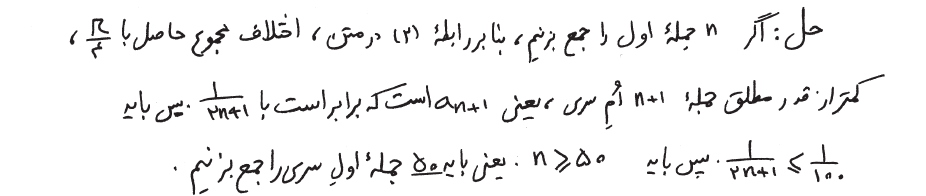 حل: اگر n جملهٔ اول را جمع بزنیم، بنا بر رابطهٔ (۲) در متن، اختلاف مجموع حاصل با π/۴،
کمتر از قدر مطلق جملهٔ n+1 اُمِ سری، یعنی a_{n+1} است که برابر است با 1/(۲n+1). پس باید
1/(۲n+1) ≤ 1/۱۰۰. پس باید n ≥ ۵۰. یعنی باید ۵۰ جملهٔ اولِ سری را جمع بزنیم.